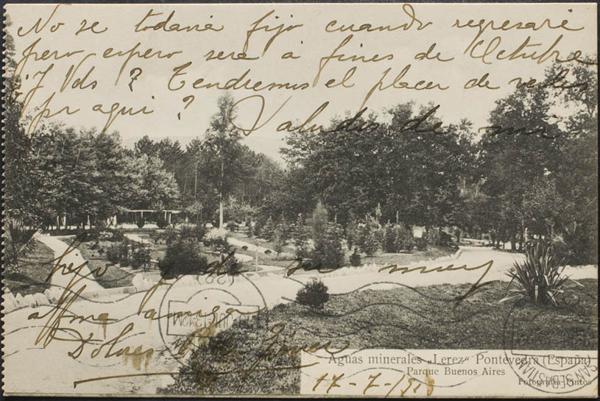 No se todavia fijo cuando regresaré
pero espero será á fines de Octubre
¿Y Vds? Tendremos el placer de
por aqui?
Saludos de mi
hijo y de su muy
affma amiga
Dolores
Aguas minerales „Lerez" Pontevedra (España)
Parque Buenos Aires
Fotografia Pintos
17-7-/910
SAN SEBASTIAN